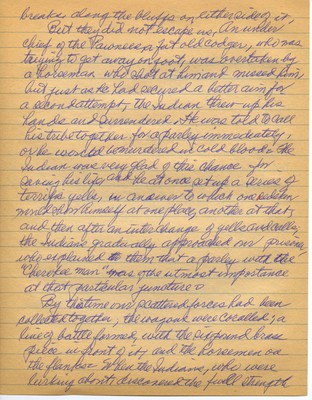 breaks along the bluffs on either side of it,
But they did not escape us, an under
chief of the Pawnees, a fat old codger, who was
trying to get away on foot, was overtaken by
a horseman who shot at him and missed him,
but just as he had secured a better aim for
a second attempt, the Indian threw up his
hands and surrendered. He was told to call
his tribe together for a parley immediately,
or he would be murdered in cold blood. The
Indian was very glad of this chance for
saving his life, and he at once set up a series of
terrific yells, in answer to which one
showed himself at one place, another at that,
and then after an interchange of yells and calls
the Indians gradually approached our prisoner
who explained to them that a parley with the
"Cherokee man" was of the utmost importance
at that particular juncture.
By this time our scattered forces had been
collected together, the wagons were corralled; a
line of battle formed, with the six pound brass
piece in front of it, and the horsemen on
the flanks. When the Indians, who were
lurking about, discovered the full strength